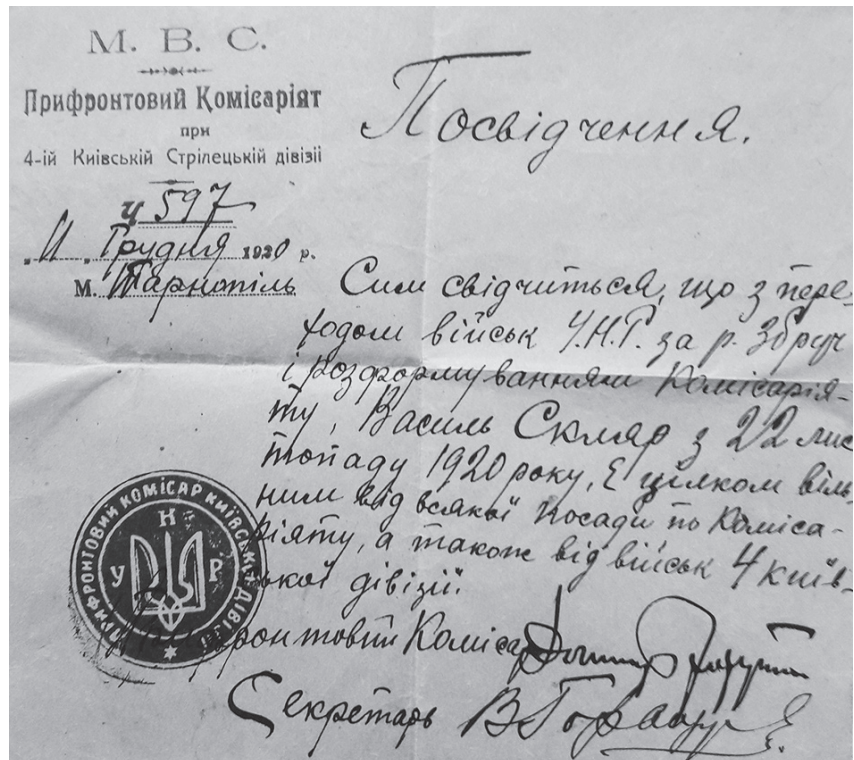 М. В. С.
Прифронтовий Комісаріят
при
4-ій Київській Стрілецькій дівізіі
Посвідчення.
ч 597
11 Грудня 1920 р.
м. Тарнопіль
Сим свідчиться, що з пере-
ходом військ У.Н.Р. за р. Збруч
і розформуванням Комісарія-
ту, Василь Скляр з 22 лис
топаду 1920 року, є цілком віль-
ним від всякої посади по Коміса-
ріяту, а також від військ 4 київ-
ської дівізії.
Прифронтовий Комісар
Секретарь
ПРИФРОНТОВИЙ КОМІСАР КИЇВСЬК ДІВІЗІЇ
У Н Р